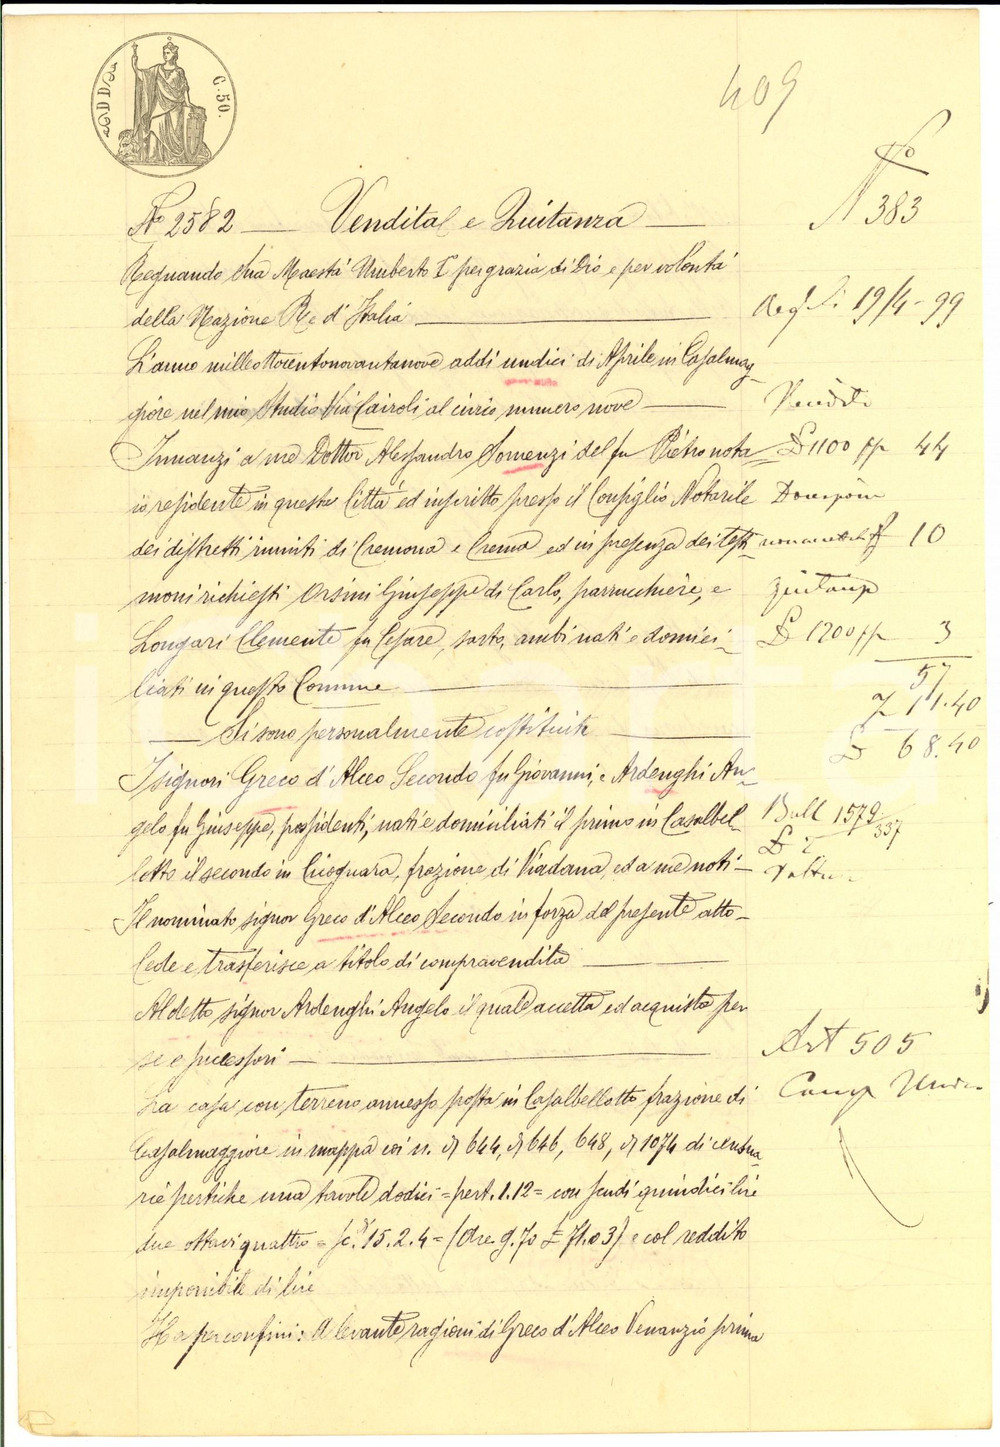 C. 50.
409
No 383
No 2582 — Vendita e Quitanza —
Regnando Sua Maestà Umberto I° per grazia di Dio e per volontà
della Nazione Re d'Italia —
Reg. li 19/4-99
L'anno milleottocentonovantanove addì undici di Aprile in Casalmag-
giore nel mio Studio Via Cairoli al civico numero nove —
Vendita
Innanzi a me Dottor Alessandro Somenzi del fu Pietro nota=
£ 1100 pp 44
io residente in questa Città ed inscritto presso il Consiglio Notarile
dei distretti riuniti di Cremona e Crema ed in presenza dei testi-
10
moni richiesti Orsini Giuseppe di Carlo, parrucchiere, e
Quitanza
Longari Clemente fu Cesare, sarto, ambi nati e domici-
£ 1200 pp 3
liati in questo Comune —
57
11.40
— Si sono personalmente costituiti —
£ 68.40
I signori Greco d'Alceo Secondo fu Giovanni, e Ardenghi An-
gelo fu Giuseppe, possidenti, nati e domiciliati il primo in Casalbel-
Boll 1579/337
lotto il secondo in Cicognara, frazione di Viadana, ed a me noti-
Il nominato signor Greco d'Alceo Secondo in forza del presente atto-
Cede e trasferisce a titolo di compravendita —
Al detto signor Ardenghi Angelo il quale accetta ed acquista per
se e successori —
Art 505
La casa con terreno annesso posta in Casalbellotto frazione di
Camp
Casalmaggiore in mappa coi n. 644, 646, 648, 1074 di censua-
rie pertiche una tavole dodici = pert. 1.12 = con scudi quindici lire
due ottavi quattro = sc. 15.2.4 = (Are 9.70 £ 71.03) e col reddito
imponibile di lire
Ha per confini: A levante ragioni di Greco d'Alceo Venanzio prima